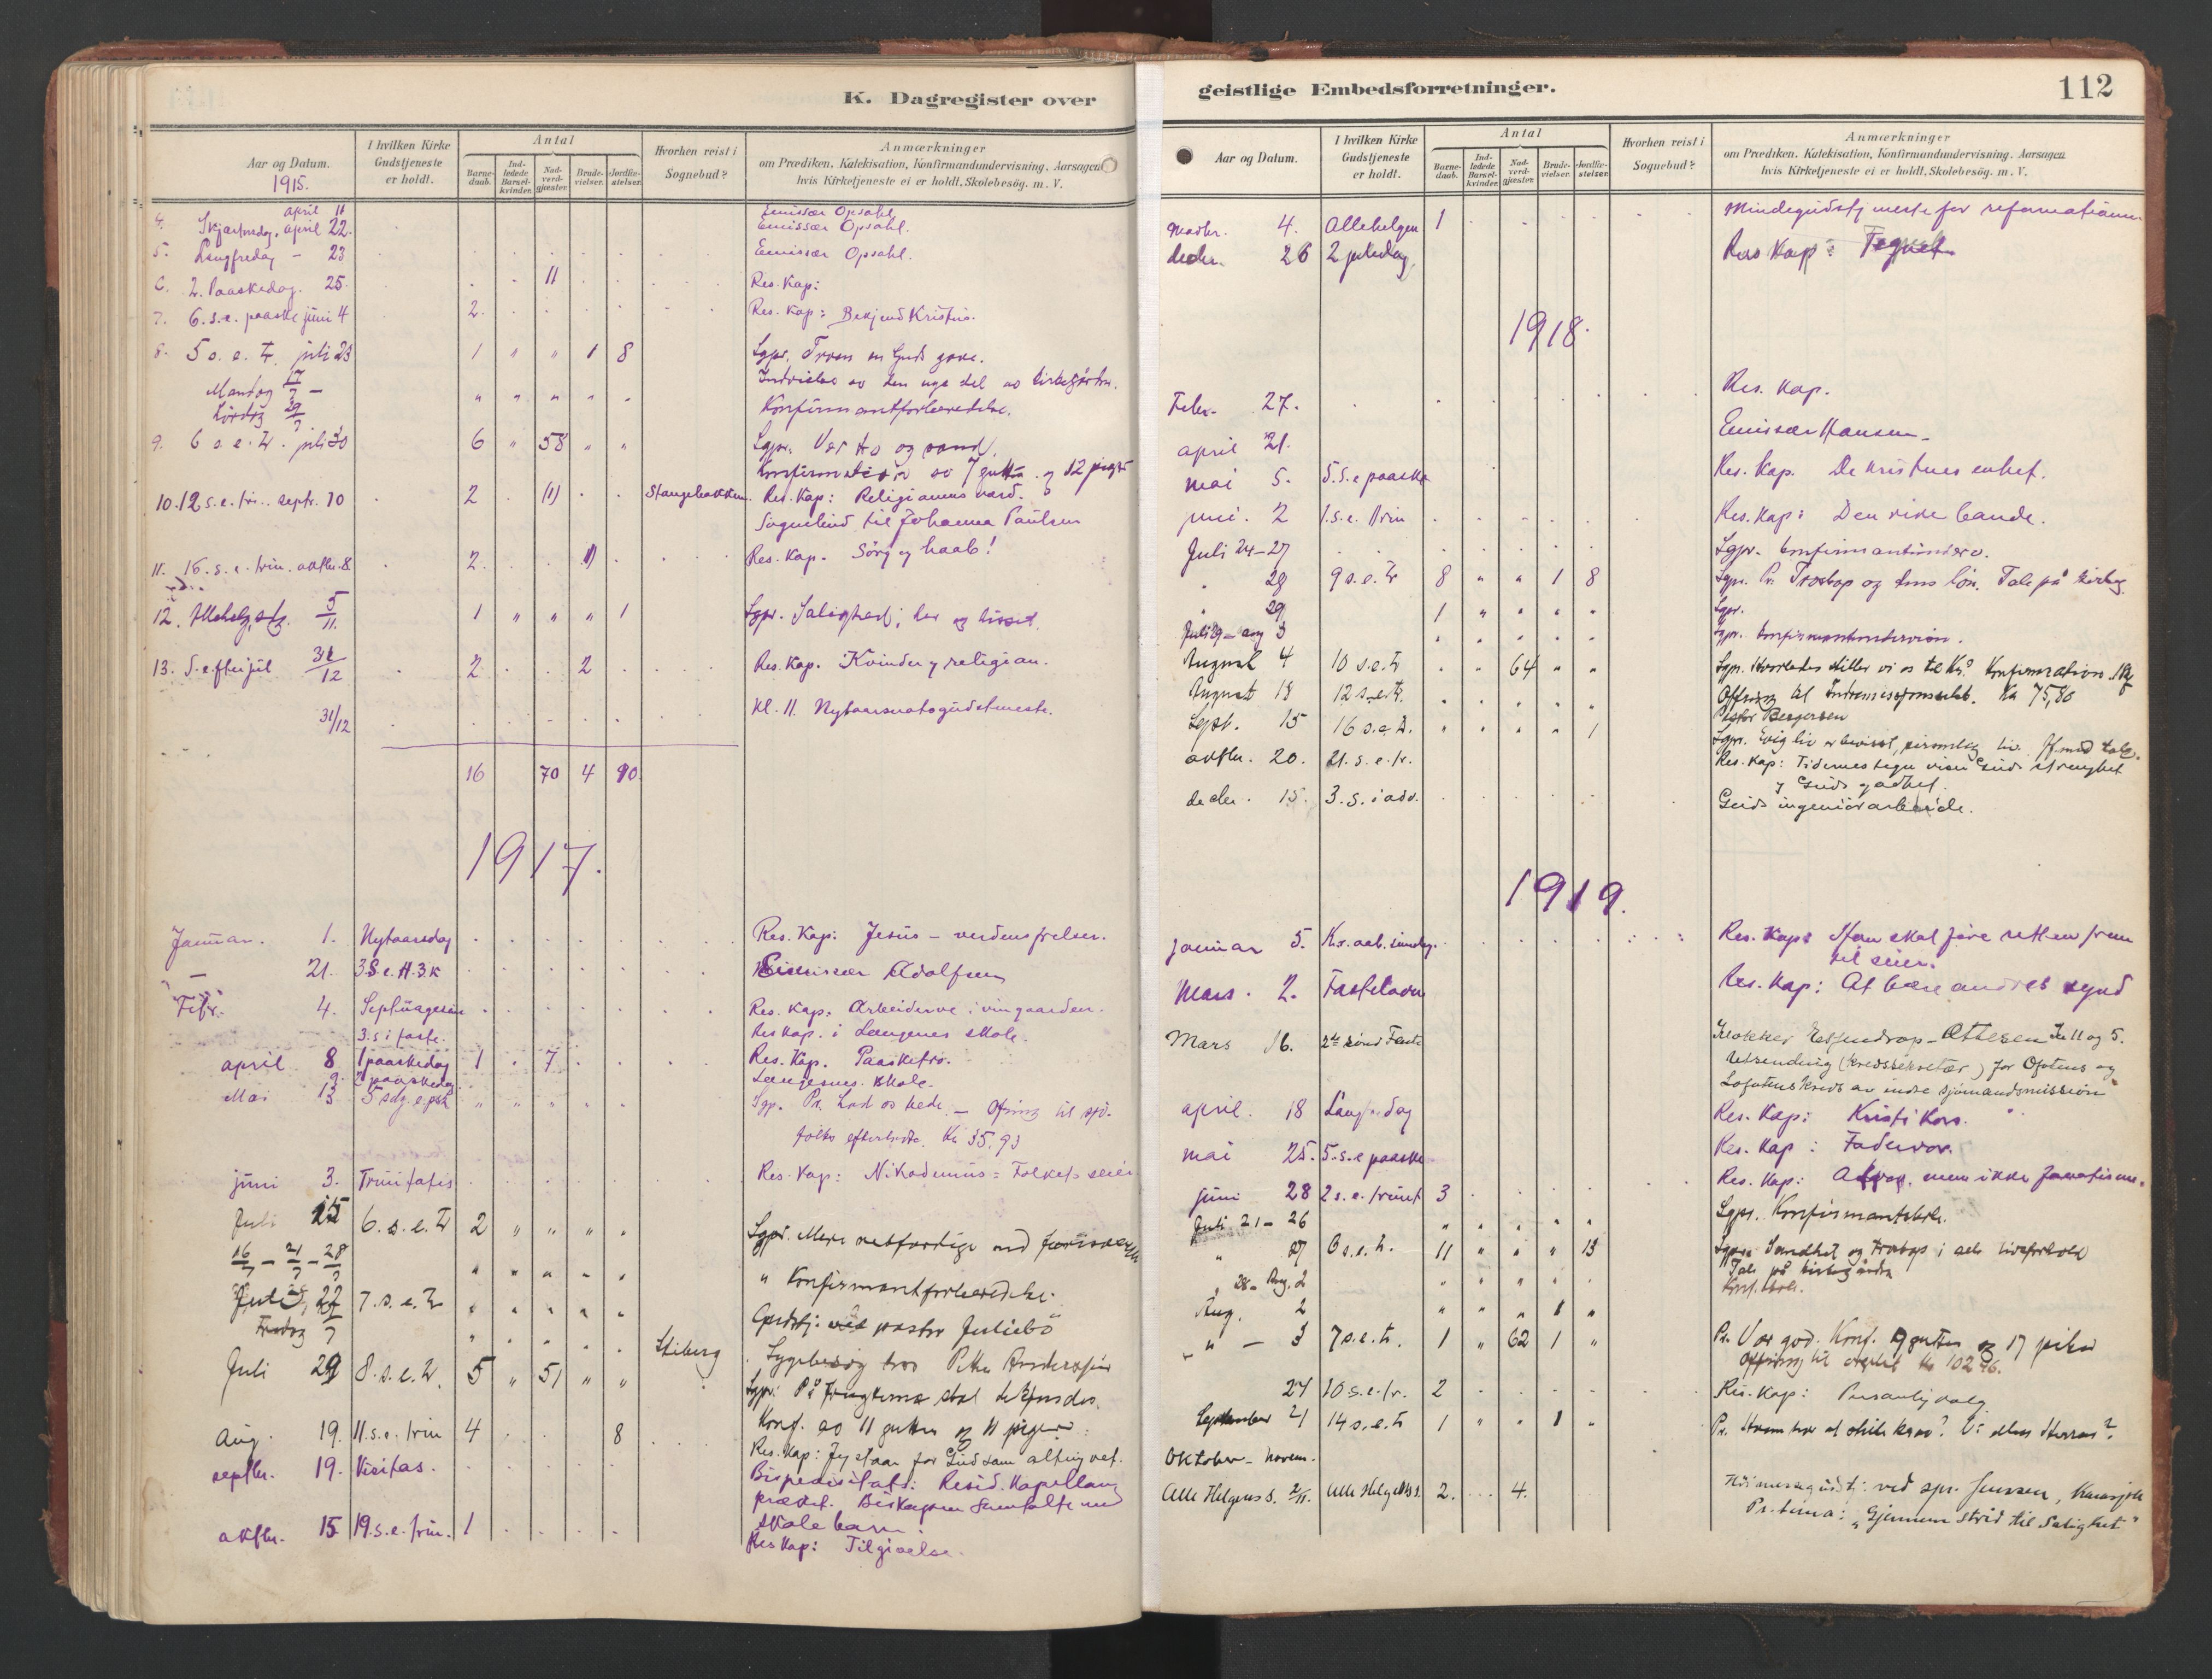 K. Dagregister over
Aar og Datum.
1915.
I hvilken Kirke Gudstjeneste er holdt.
Antal
Barnedaab.
Indledede Barselkvinder.
Nadverdgjæster.
Brudevielser.
Jordfæstelser.
Hvorhen reist i Sognebud?
Anmærkninger
om Prædiken, Katekisation, Konfirmandundervisning. Aarsagen
hvis Kirketjeneste ei er holdt, Skolebesøg. m. V.
april 11 Emissær Opsahl
4. Skjærtorsdag, april 22. Emissær Opsahl.
5. Langfredag - 23 Emissær Opsahl.
6. 2. Paaskedag. 25. 11 Res. Kap:
7. 6. s. e. paaske juni 4 2. Res. Kap: Bekjend Kristus.
8. 5 s. e. Tr. juli 23 1 " " 1 8 Sgpr. Troen en Guds gave.
Indvielse av den nye del av kirkegården.
Mandag 17/7 -
Lørdag 29/7 " " " " " Konfirmantforberedelse.
9. 6 s. e. Tr. juli 30 6 " 58 " " Sgpr. Vær tro og sand.
Konfirmation av 7 gutter og 12 piger
10. 12 s. e. tri.. septr. 10 2 11 Stangebakken. Res. Kap: Religionens værd.
Sognebud til Johanna Paulsen
11. 16. s. e. trin. oktbr. 8 2. 1 Res. Kap. Sorg og haab!
12. Allehelg. 5/11. 1 " " " 1 Sgpr. Salighed, her og hisset.
13. S. efter jul 31/12 2 2 Res. Kap. Kvinden og religion.
31/12 Kl. 11. Nytaarsnatsgudstjeneste.
16 70 4 90
1917.
Januar. 1. Nytaarsdag Res. Kap: Jesus - verdens frelser.
- 21. 3 S e. H.3.K Emissær Adolfsen
Febr. 4. Septuagesim Res. Kap. Arbeiderne i vingaarden.
3. s i faste. Res Kap. i Langenes skole.
april 8 1 paaskedag 1 7 Res. Kap. Paasketro.
9. 2 paaskedag Langenes. skole.
Mai 13 5 sdg. e. psk " " " " " Sgp. Pr. Lad os bede. - Ofring til sjøfolks efterladte. Kr 35.93
juni 3. Trinitatis Res. Kap: Nikodemus: Folkets seier
Juli 15 6. s. e. Tr 2 " " " " Sgpr. Mere retfærdige end farisæerne
16/7 - 21/7 - 28/7 " " " " " " Konfirmantforberedelse.
Juli 22 7. s. e. Tr " " " " " Gudstj. ved pastor Juliebø
Fredag " " " " Stiberg Sygebesøg hos Petter Andersen
Juli 29 8. s. e. Tr. 5 " 51 " " Sgpr: På frugterne skal de kjendes.
Konf. av 11 gutter og 11 piger
Aug. 19. 11. s. e. trin 4 8 Res. Kap: Jeg staar for Gud som alting vet.
septbr. 19. Visitas. Bispevisitats: Resid. Kapellan
prædiket. Biskopen samtalte med
skolebarn.
oktbr. 15 19. s. e. trin. 1 Res Kap: Tilgivelse.
geistlige Embedsforretninger.
112
Aar og Datum.
I hvilken Kirke Gudstjeneste er holdt.
Antal
Barnedaab.
Indledede Barselkvinder.
Nadverdgjæster.
Brudevielser.
Jordfæstelser.
Hvorhen reist i Sognebud?
Anmærkninger
om Prædiken, Katekisation, Konfirmandundervisning. Aarsagen
hvis Kirketjeneste ei er holdt, Skolebesøg. m. V.
Novbr. 4. Allehelgen 1 Mindegudstjeneste for reformationen.
decbr. 26 2 juledag Res Kap: Tegnet
1918.
Febr. 27. Res. Kap.
april 21. Emissær Hansen -
mai 5. 5. s. e paaske Res. Kap. De kristnes enhet.
juni. 2 1. s. e. trin Res. Kap: Den rike bonde.
Juli 24-27 Sgpr. konfirmantunderv.
" 28 9 s. e. Tr 8 " " 1 8 Sgpr. Pr. Troskap og dens løn. Tale på kirkeg.
" 29 1 " " " " Sgpr.
Juli 29 - aug 3 " " " " " Sgpr. konfirmantundervisn.
August 4 10 s. e. Tr " " 64 " " Sgpr. Hvorledes stiller vi os til Kr? Konfirmation.
Offring til Indremissionsselsk. Kr 75,80
August 18 12 s. e. Tr. " " " " " Pastor Bergersen
Sept. 15 16 s. e. Tr. " " " " 1 Sgpr. Evig liv er bevisst, personlig liv.
oktbr. 20. 21. s. e. tr. Res. Kap: Tidernes tegn viser Guds strenghet
og Guds godhet.
decbr. 15. 3. s. i adv. Guds ingeniørarbeide.
1919.
januar 5. Kr. aab. søndag. Res. Kap: Han skal føre retten frem
til seier.
Mars. 2. Fastelavn Res. Kap: At bære andres synd
Mars 16. 2den sønd Faste Klokker Ottesen Kl 11 og 5.
Utsending (kredssekretær) for Ofotens og
Lofotens kreds av indre sjømandsmission
april. 18 Langfredag Res. Kap: Kristi Kors.
mai 25. 5. s. e paaske Res. Kap: Fadervor.
juni 28 2 s. e. trinit 3 Res. Kap: Alvor, men ikke fanatisme.
Juli 21 - 26 " " " " " Sgpr. Konfirmantskole.
" 27 6 s. e. tr. 11 " " " 13 Sgpr. Sandhet og troskap i selv livsforhold
Tale på kirkegården
" 28 - Aug. 2 " " " " " Konf. skole.
Aug. 2 " " " 1 "
" - 3 7 s. e. tr. 1 " 62 1 " Pr. Vær god. Konf. 9 gutter og 17 piker
Offring til kr 102.46.
24 10 s. e. tr. 2 Res. Kap: Personlig valg
September 21 14 s. e. tr 1 " " 1 " Pr. Hvem har at stille krav? Vi eller Herren?
Oktober - Novem.
Alle Helgens s. 2/11. Alle Helgens s. 2. 4. Høimessegudstj. ved spr. Jenssen, Karasjok
Pr. tema: "Gjennem strid til salighet"